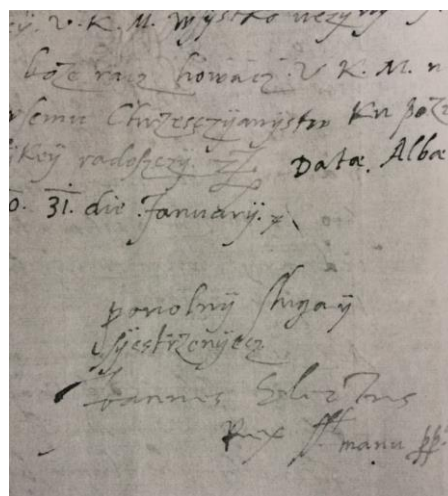 V. K. M. wszystko
boże racz chowacz. V K. M. n
wssemu Chrzesczÿanÿstw Ku boż
ÿkÿeÿ radosczÿ. Datæ. Albæ
0. 31. die Januarÿ.
powolnÿ slugaÿ
sÿestrzenÿecz
Joannes Electus
Rex manu pp